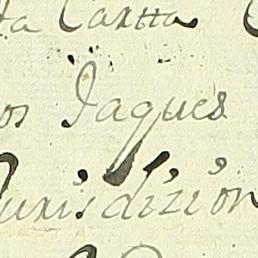 ta Cartta
os Jaques
Jurisdizión